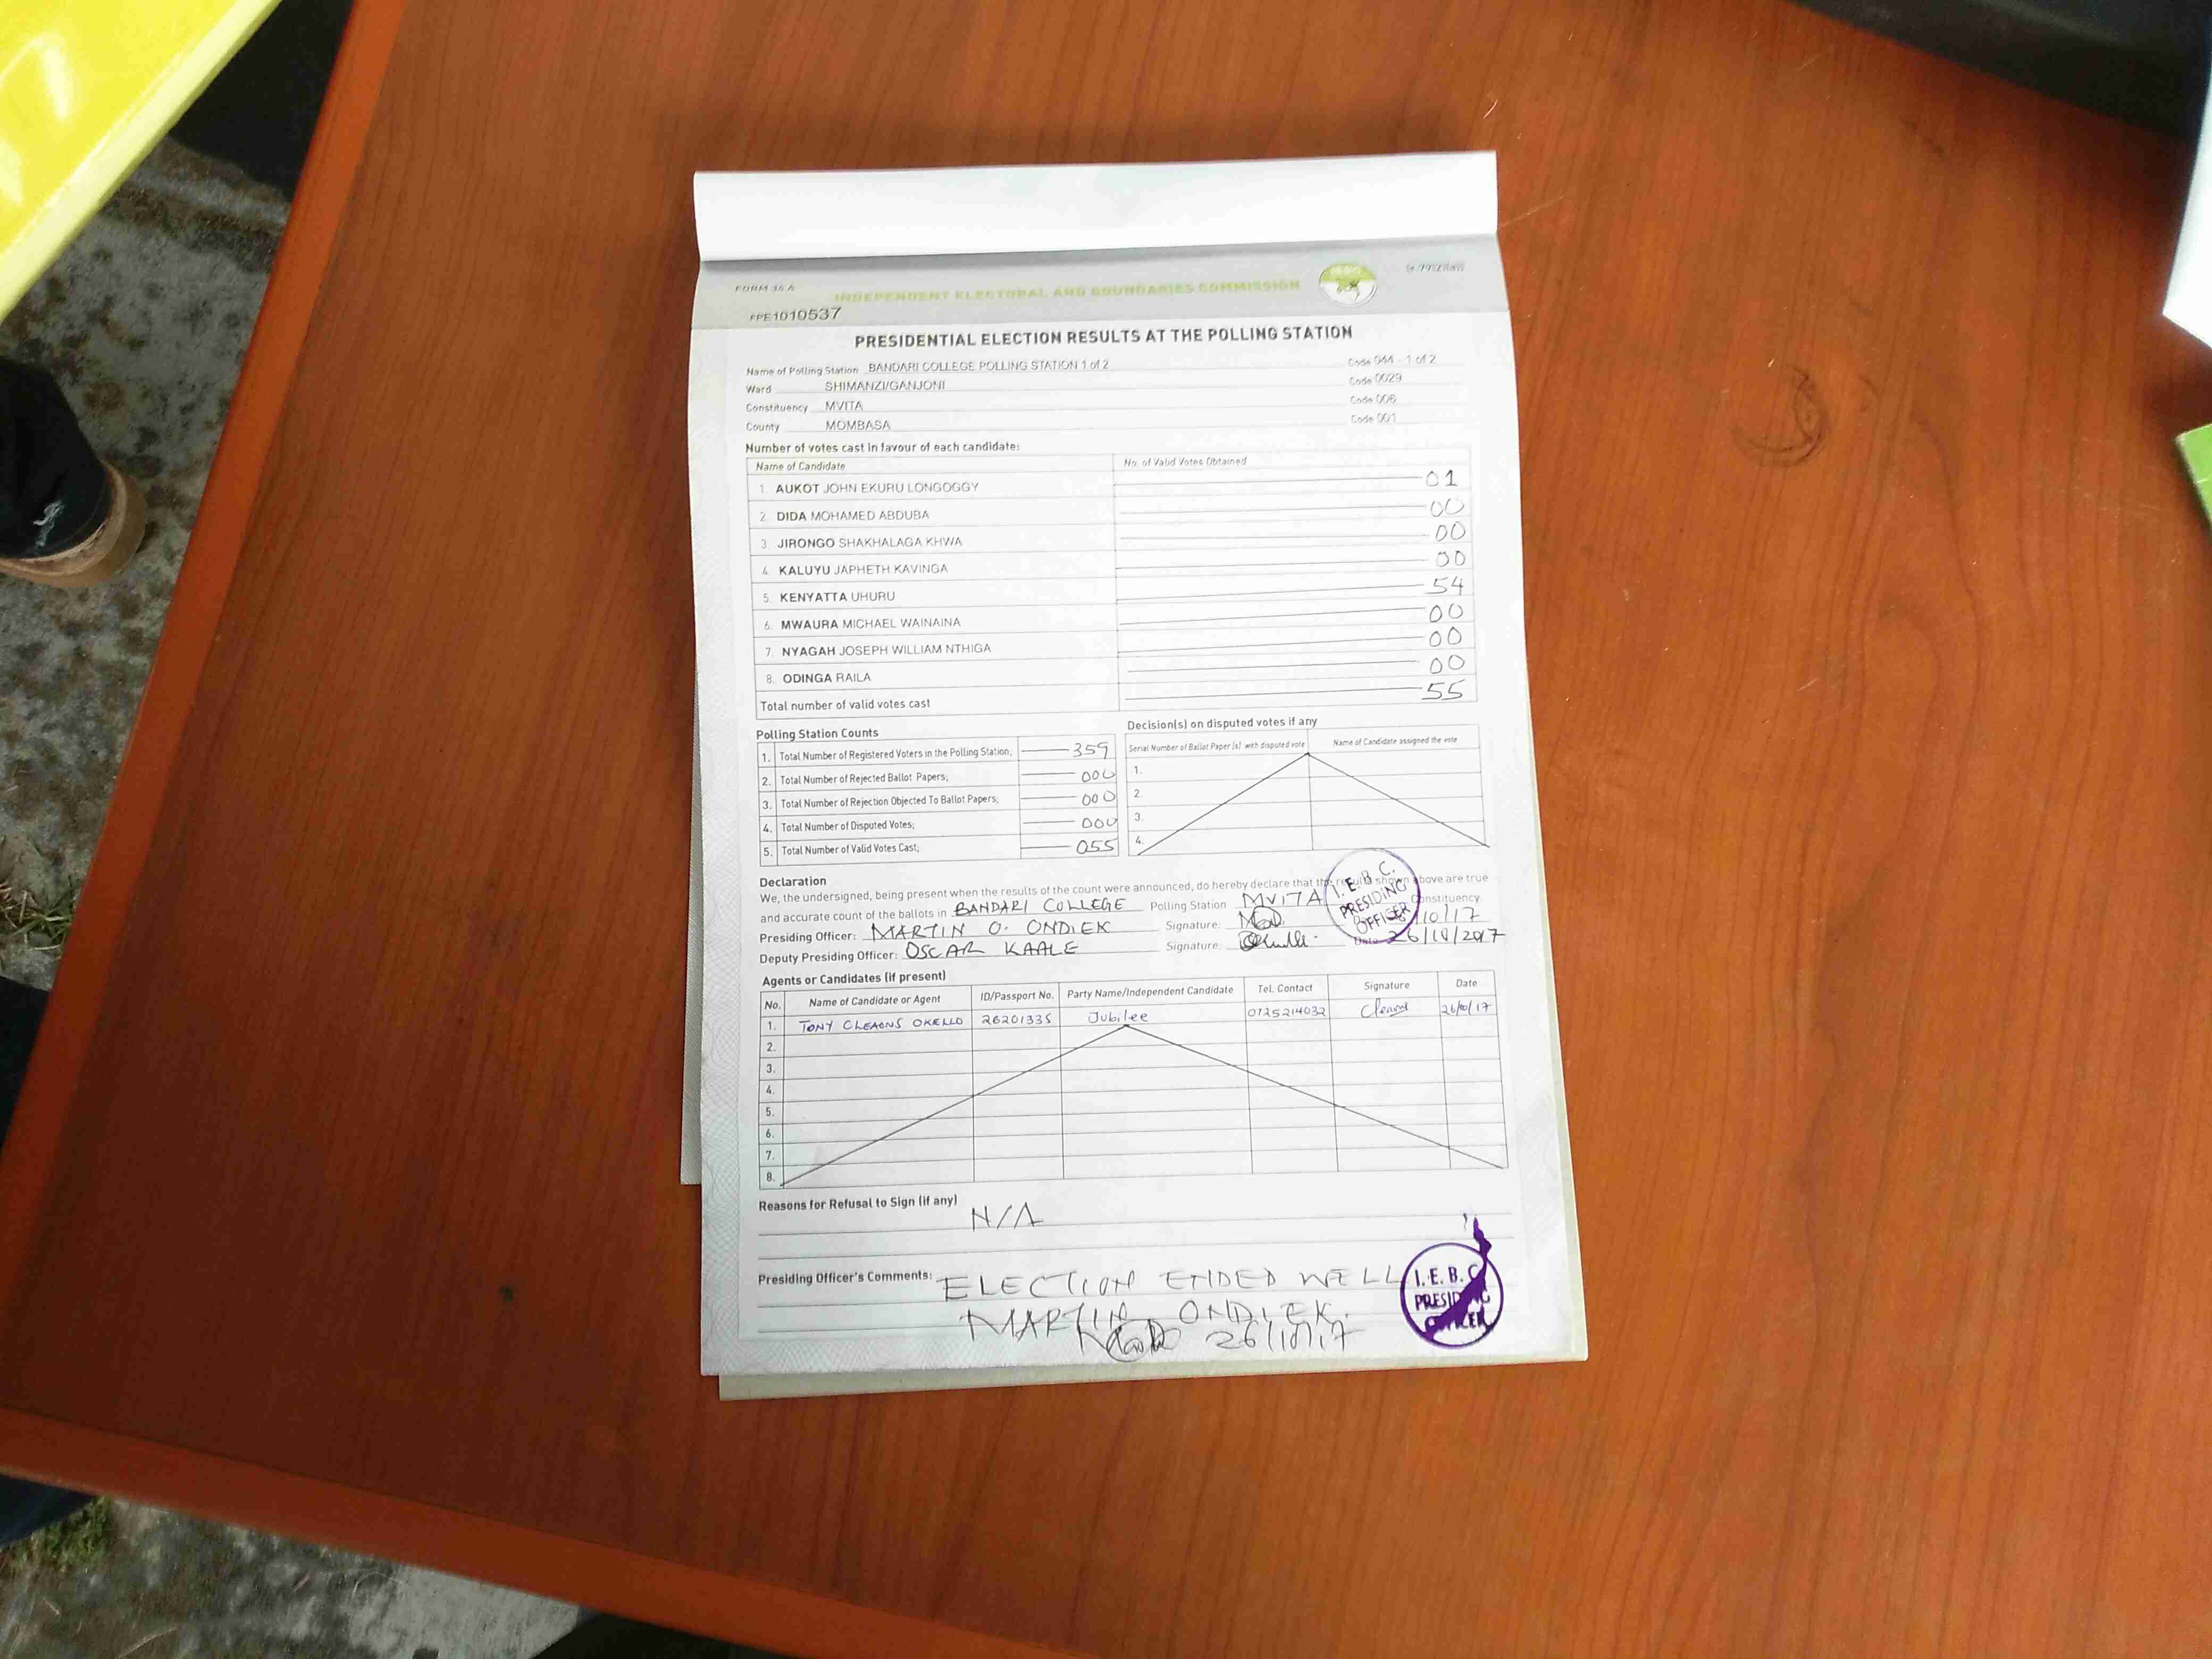 FORM 34 A
INDEPENDENT ELECTORAL AND BOUNDARIES COMMISSION
PPE1010537
PRESIDENTIAL ELECTION RESULTS AT THE POLLING STATION
Name of Polling Station BANDARI COLLEGE POLLING STATION 1 of 2 Code 044 - 1 of 2
Ward SHIMANZI/GANJONI Code 0029
Constituency MVITA Code 006
County MOMBASA Code 001
Number of votes cast in favour of each candidate:
Name of Candidate No. of Valid Votes Obtained
1. AUKOT JOHN EKURU LONGOGGY 01
2. DIDA MOHAMED ABDUBA 00
3. JIRONGO SHAKHALAGA KHWA 00
4. KALUYU JAPHETH KAVINGA 00
5. KENYATTA UHURU 54
6. MWAURA MICHAEL WAINAINA 00
7. NYAGAH JOSEPH WILLIAM NTHIGA 00
8. ODINGA RAILA 00
Total number of valid votes cast 55
Polling Station Counts
1. Total Number of Registered Voters in the Polling Station; 359
2. Total Number of Rejected Ballot Papers; 000
3. Total Number of Rejection Objected To Ballot Papers; 000
4. Total Number of Disputed Votes; 000
5. Total Number of Valid Votes Cast; 055
Decision(s) on disputed votes if any
Serial Number of Ballot Paper (s) with disputed vote Name of Candidate assigned the vote
1.
2.
3.
4.
Declaration
We, the undersigned, being present when the results of the count were announced, do hereby declare that the results shown above are true
and accurate count of the ballots in BANDARI COLLEGE Polling Station MVITA Constituency.
Presiding Officer: MARTIN O. ONDIEK Signature: /10/17
Deputy Presiding Officer: OSCAR KAALE Signature: Date 26/10/2017
I.E.B.C.
PRESIDING
OFFICER
Agents or Candidates (if present)
No. Name of Candidate or Agent ID/Passport No. Party Name/Independent Candidate Tel. Contact Signature Date
1. TONY CLEAONS OKELLO 26201335 Jubilee 0725214032 26/10/17
2.
3.
4.
5.
6.
7.
8.
Reasons for Refusal to Sign (if any)
N/A
Presiding Officer's Comments: ELECTION ENDED WELL
MARTIN ONDIEK.
26/10/17
I.E.B.C
PRESIDING
OFFICER